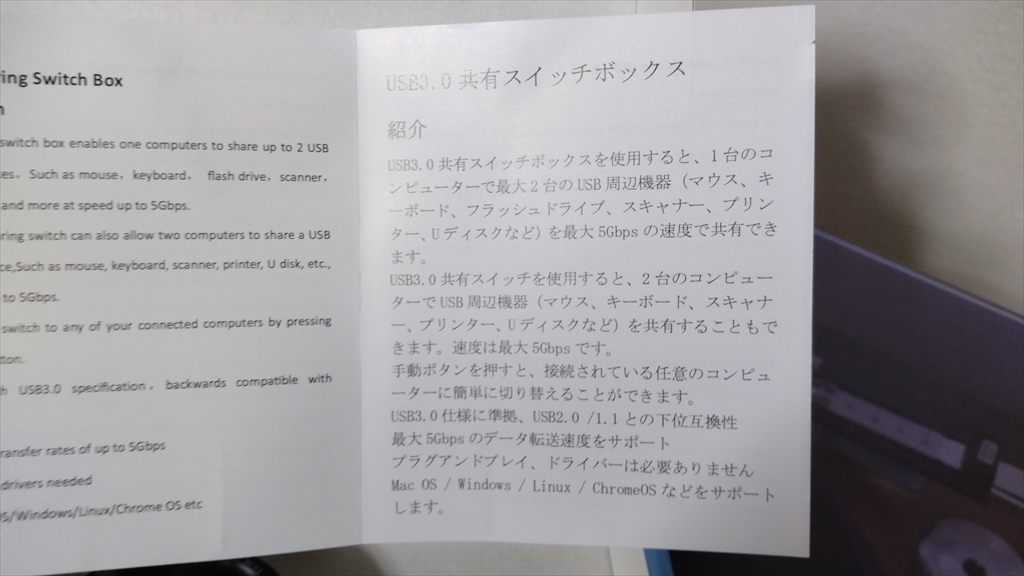 ring Switch Box
switch box enables one computers to share up to 2 USB
es, Such as mouse, keyboard, flash drive, scanner,
and more at speed up to 5Gbps.
ring switch can also allow two computers to share a USB
ce,Such as mouse, keyboard, scanner, printer, U disk, etc.,
to 5Gbps.
switch to any of your connected computers by pressing
tton.
h USB3.0 specification, backwards compatible with
ransfer rates of up to 5Gbps
drivers needed
OS/Windows/Linux/Chrome OS etc
USB3.0 共有スイッチボックス
紹介
USB3.0 共有スイッチボックスを使用すると、1 台のコ
ンピューターで最大 2 台の USB 周辺機器（マウス、キ
ーボード、フラッシュドライブ、スキャナー、プリン
ター、U ディスクなど）を最大 5Gbps の速度で共有でき
ます。
USB3.0 共有スイッチを使用すると、2 台のコンピュー
ターで USB 周辺機器（マウス、キーボード、スキャナ
ー、プリンター、U ディスクなど）を共有することもで
きます。速度は最大 5Gbps です。
手動ボタンを押すと、接続されている任意のコンピュ
ーターに簡単に切り替えることができます。
USB3.0 仕様に準拠、USB2.0 /1.1 との下位互換性
最大 5Gbps のデータ転送速度をサポート
プラグアンドプレイ、ドライバーは必要ありません
Mac OS / Windows / Linux / ChromeOS などをサポート
します。